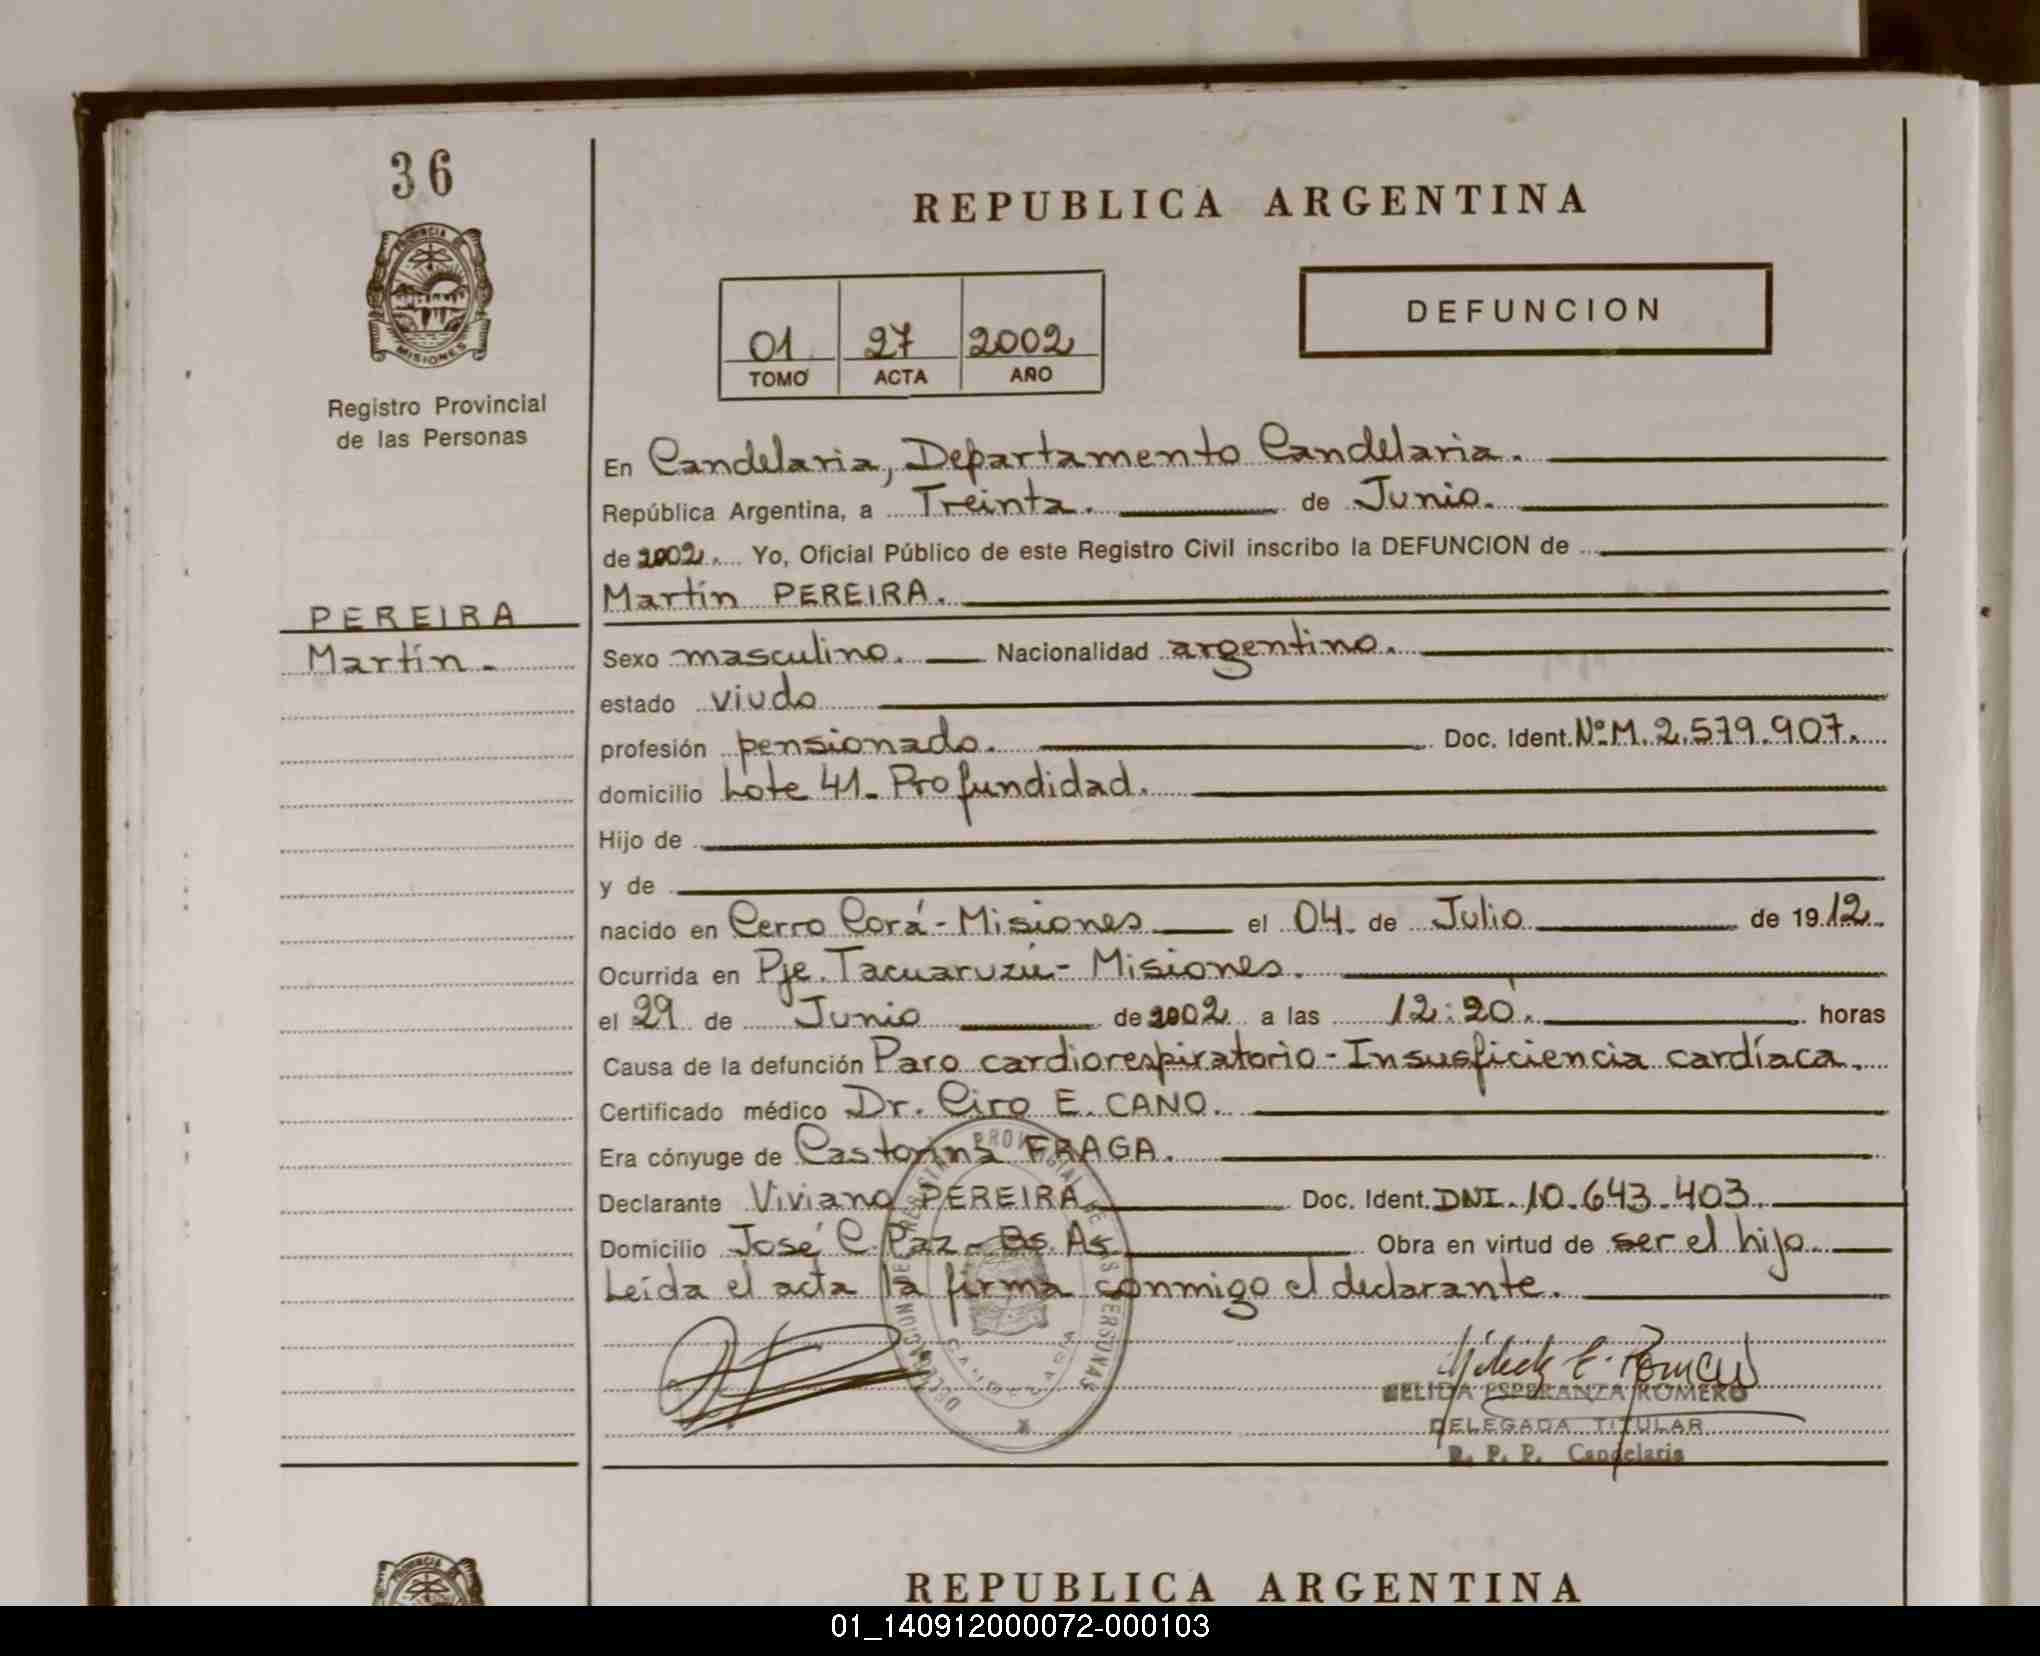 36
PROVINCIA DE
MISIONES
Registro Provincial
de las Personas
PEREIRA
Martín.
REPUBLICA ARGENTINA
01 27 2002
TOMO ACTA AÑO
DEFUNCION
En Candelaria, Departamento Candelaria.
República Argentina, a Treinta. de Junio.
de 2002. Yo, Oficial Público de este Registro Civil inscribo la DEFUNCION de
Martín PEREIRA.
Sexo masculino. Nacionalidad argentino.
estado viudo
profesión pensionado. Doc. Ident. Nº M. 2.579.907.
domicilio Lote 41- Profundidad.
Hijo de
y de
nacido en Cerro Corá - Misiones el 04. de Julio de 1912.
Ocurrida en Pje. Tacuaruzú - Misiones.
el 29 de Junio de 2002 a las 12:20'. horas
Causa de la defunción Paro cardiorespiratorio - Insuficiencia cardíaca.
Certificado médico Dr. Ciro E. CANO.
Era cónyuge de Castorina FRAGA.
Declarante Viviano PEREIRA Doc. Ident. DNI. 10.643.403
Domicilio José C. Paz - Bs. As. Obra en virtud de ser el hijo.
Leída el acta la firma conmigo el declarante.
DELEGACION DEL REGISTRO PROVINCIAL DE LAS PERSONAS
CANDELARIA
ESPERANZA ROMERO
DELEGADA TITULAR
R. P. P. Candelaria
PROVINCIA DE
REPUBLICA ARGENTINA
01_140912000072-000103